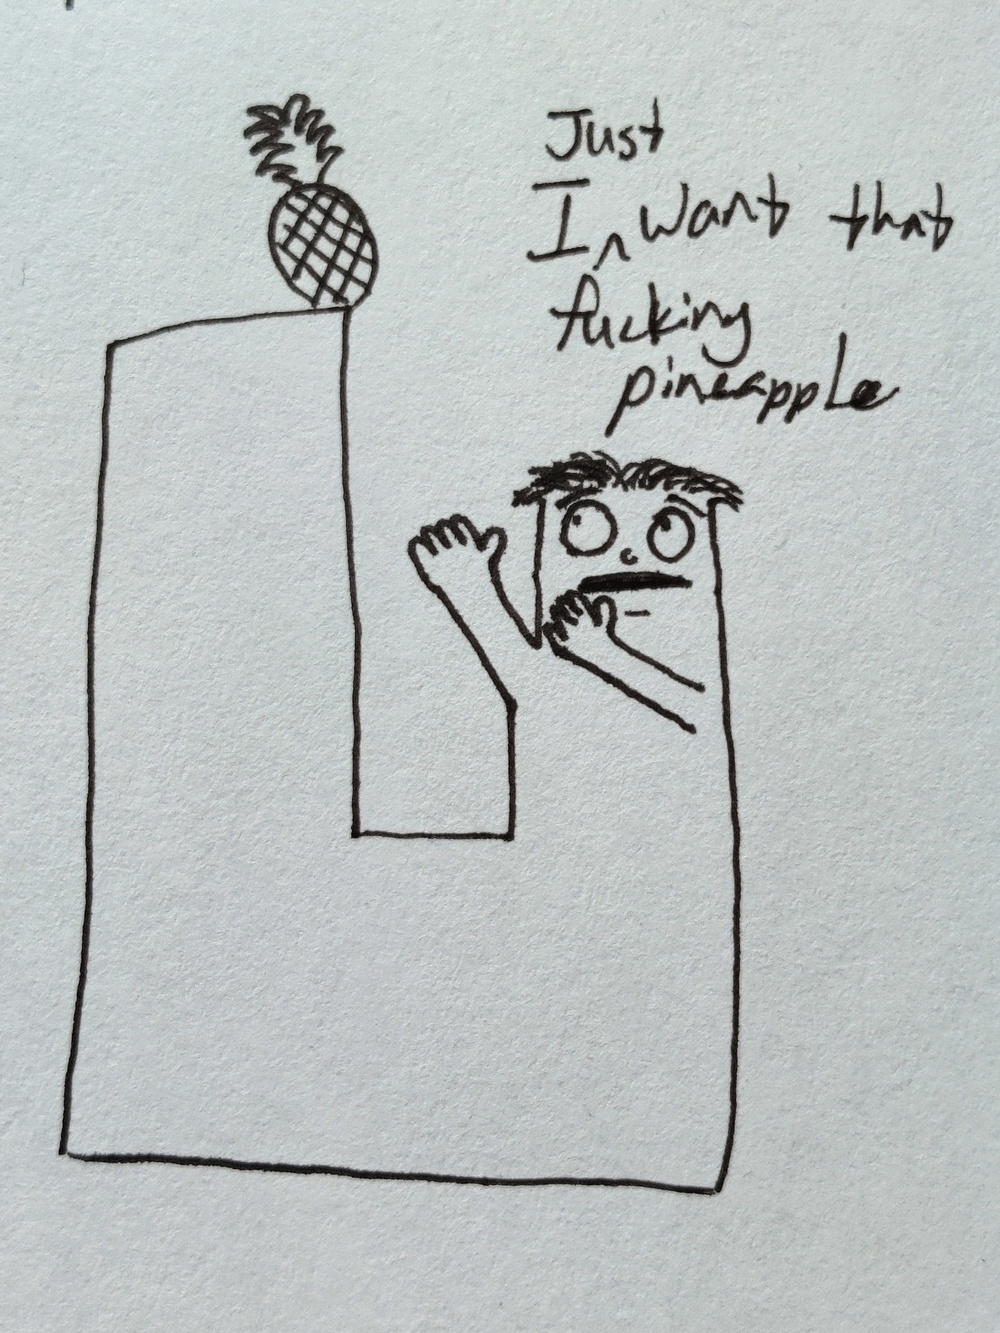 Just
I ^ want that
fucking
pineapple